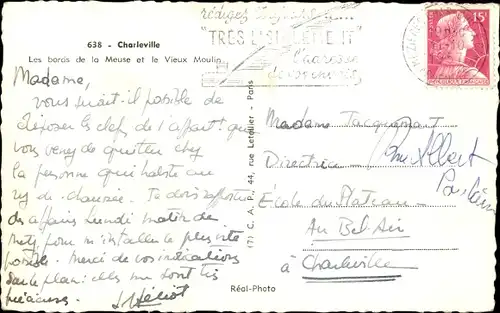 rédigez toujours
"TRÈS LISIBLEMENT"
l'adresse
638 - Charleville
Les bords de la Meuse et le Vieux Moulin
15F
Madame,
vous serait-il possible de
déposer les clefs de l'appart que
vous venez de quitter chez
la personne qui habite au
rez de chaussée. Je dois apporter
des affaires Lundi matin de
Metz pour m'installer le plus vite
possible. Merci de vos indications
sur le plan: elles me sont très
précieuses.
(7) C. A. P., 44, rue Letellier - Paris
Madame Jacquemart
Directrice
École du Plateau
Au Bel Air
à Charleville
Réal-Photo